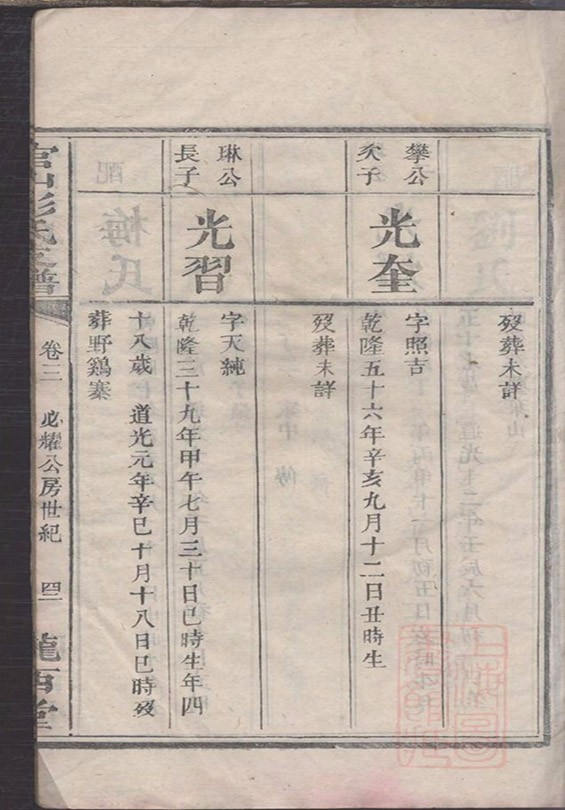 歿葬未詳
攀公
次子
光奎
字照吉
乾隆五十六年辛亥九月十二日丑時生
歿葬未詳
琳公
長子
光習
字天純
乾隆三十九年甲午七月三十日巳時生年四
十八歲 道光元年辛巳十月十八日巳時歿
葬野鷄寨
配
梅氏
卷三 必耀公房世紀 四二